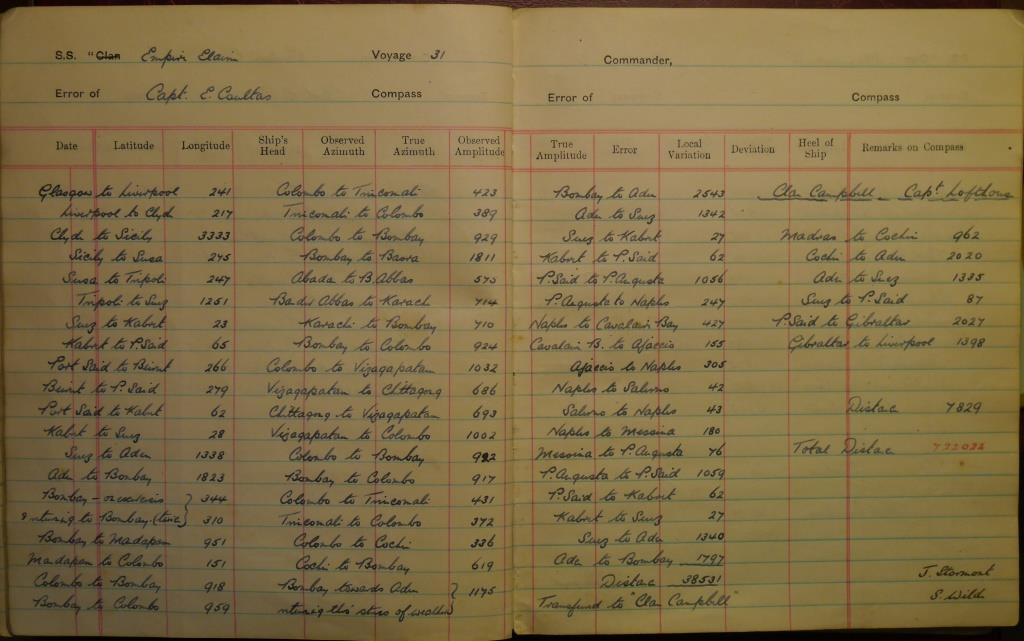 S.S. "Clan Empire Elaine Voyage 31
Error of Capt. E. Coultas Compass
Date Latitude Longitude Ship's Head Observed Azimuth True Azimuth Observed Amplitude
Glasgow to Liverpool 241 Colombo to Trincomali 423
Liverpool to Clyde 217 Trincomali to Colombo 389
Clyde to Sicily 3333 Colombo to Bombay 929
Sicily to Susa 275 Bombay to Basra 1811
Susa to Tripoli 247 Abada to B. Abbas 575
Tripoli to Suez 1251 Bader Abbas to Karach 714
Suez to Kabret 23 Karachi to Bombay 710
Kabret to P. Said 65 Bombay to Colombo 924
Port Said to Beirut 266 Colombo to Vizagapatam 1032
Beirut to P. Said 279 Vizagapatan to Chttagong 686
Port Said to Kabret 62 Chittagong to Vizagapatam 693
Kabret to Suez 28 Vizagapatan to Colombo 1002
Suez to Aden 1338 Colombo to Bombay 922
Aden to Bombay 1823 Bombay to Colombo 917
Bombay - on exercises } 344 Colombo to Trincomali 431
returning to Bombay. (twice) 310 Trincomali to Colombo 372
Bombay to Madapan 951 Colombo to Cochi 336
Madapam to Colombo 151 Cochi to Bombay 619
Colombo to Bombay 918 Bombay towards Aden } 1175
Bombay to Colombo 959 returning this stress of weather
Commander,
Error of Compass
True Amplitude Error Local Variation Deviation Heel of Ship Remarks on Compass
Bombay to Aden 2543 Clan Campbell - Capt. Lofthouse
Aden to Suez 1342
Suez to Kabret 27 Madras to Cochin 962
Kabret to P. Said 62 Cochi to Aden 2020
P. Said to P. Augusta 1056 Aden to Suez 1335
P. Augusta to Naples 247 Suez to P. Said 87
Naples to Cavalair Bay 427 P. Said to Gibraltar 2027
Cavalair B. to Ajaccio 155 Gibraltar to Liverpool 1398
Ajaccio to Naples 305
Naples to Salerno 42
Salerno to Naples 43 Distance 7829
Naples to Messina 180
Messina to P. Augusta 76 Total Distance
P. Augusta to P. Said 1059
P. Said to Kabret 62
Kabret to Suez 27
Suez to Aden 1340
Aden to Bombay 1797
Distance 38531 J. Stormont
Transferred to "Clan Campbell" S. Wilds